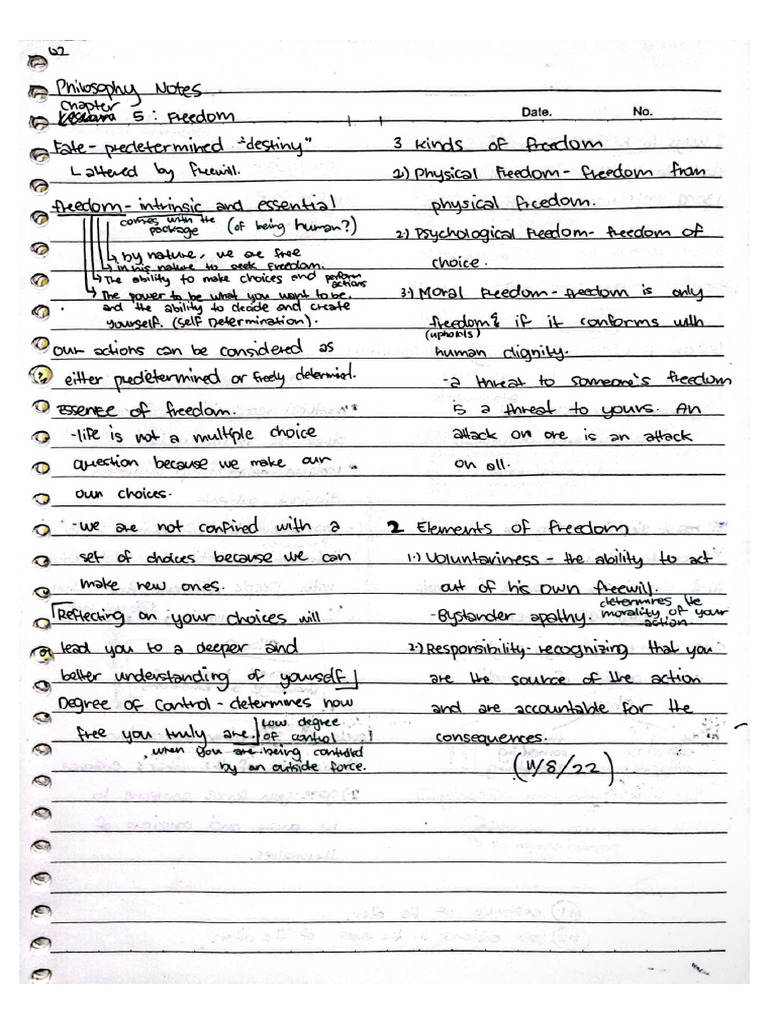 Q2
Philosophy Notes
Chapter
5: Freedom
Date.
No.
Fate- predetermined "destiny"
↳ altered by freewill.
freedom- intrinsic and essential
comes with the package (of being human?)
↳ by nature, we are free
↳ in his nature to seek freedom.
↳ The ability to make choices and perform actions
↳ The power to be what you want to be.
and the ability to decide and create
yourself. (Self Determination).
our actions can be considered as
either predetermined or freely determined.
Essence of freedom.
-life is not a multiple choice
question because we make our
own choices.
-we are not confined with a
set of choices because we can
make new ones.
Reflecting on your choices will
lead you to a deeper and
better understanding of yourself
Degree of Control- determines how
free you truly are.
Low degree
of control
when you are being controlled
by an outside force.
3 kinds of freedom
1.) Physical Freedom- freedom from
physical freedom.
2.) Psychological Freedom- freedom of
choice.
3.) Moral Freedom- freedom is only
freedom if it conforms with
(upholds)
human dignity.
-a threat to someone's freedom
is a threat to yours. An
attack on one is an attack
on all.
2 Elements of freedom
1.) Voluntariness - the ability to act
out of his own freewill.
-Bystander apathy.
determines the
morality of your
action.
2.) Responsibility- recognizing that you
are the source of the action
and are accountable for the
consequences.
(11/8/22)